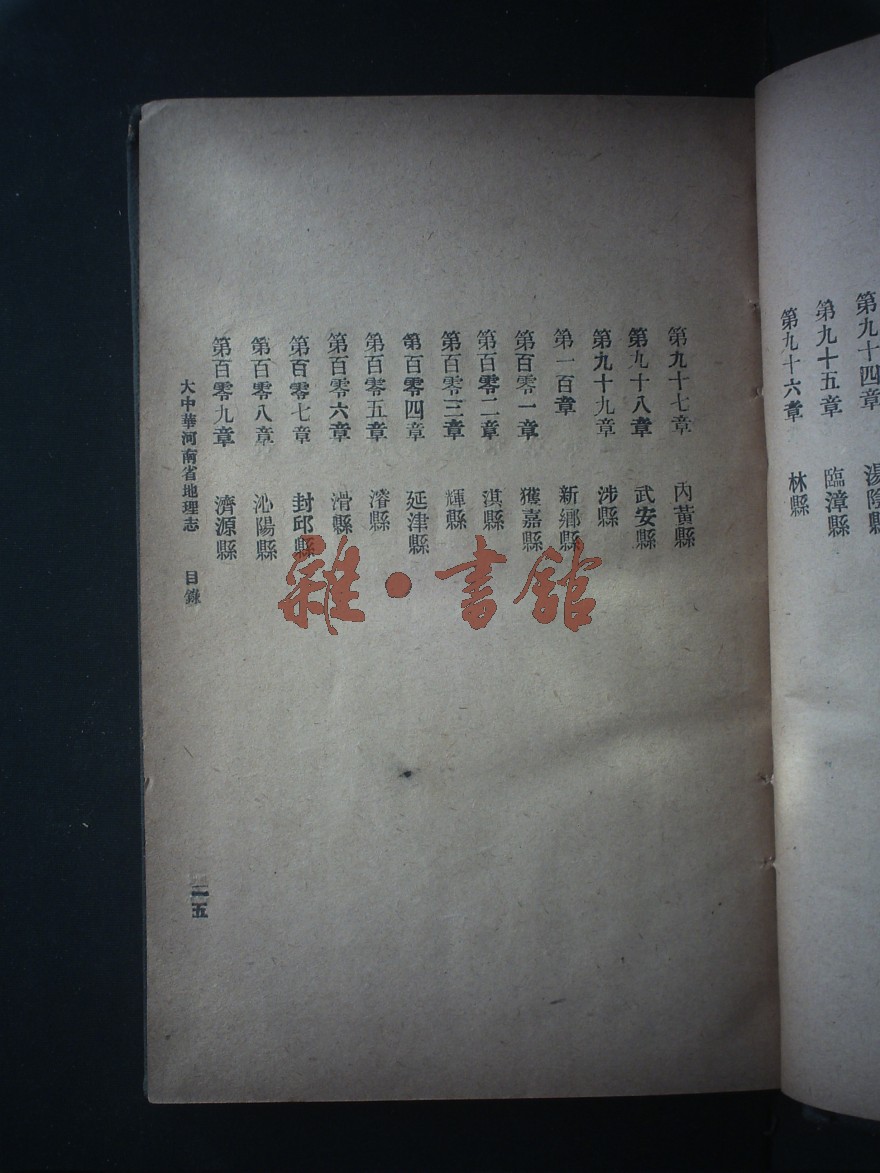 第九十四章　湯陰縣
第九十五章　臨漳縣
第九十六章　林縣
第九十七章　內黃縣
第九十八章　武安縣
第九十九章　涉縣
第一百章　新鄉縣
第百零一章　獲嘉縣
第百零二章　淇縣
第百零三章　輝縣
第百零四章　延津縣
第百零五章　濬縣
第百零六章　滑縣
第百零七章　封邱縣
第百零八章　沁陽縣
第百零九章　濟源縣
大中華河南省地理志　目錄
二五
雜·書館